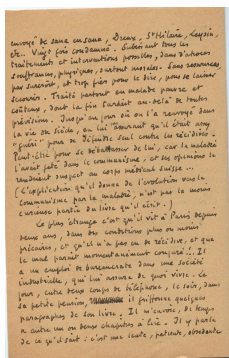 envoyé de sana en sana, Dreux, St Hilaire, Leysin,
etc.. Vingt fois condamné. Subissant tous les
traitements et interventions possibles, dans d'atroces
souffrances, physiques, surtout morales. Sans ressources,
par surcroît, et trop fier pour le dire, pour se laisser
secourir. Traité partout en malade pauvre et
coûteux, dont la fin tardait au-delà de toutes
prévisions. Jusqu'au jour où on l'a renvoyé dans
la vie en civile, en lui assurant qu'il était
"guéri" pour se défendre seul contre la récidive.
Peut-être pour se débarrasser de lui, car la maladie
l'avait jeté dans le communisme, et ses opinions le
rendaient suspect au corps médical suisse.
(L'explication qu'il donne de l'évolution vers le
communisme par la maladie, n'est pas la moins
curieuse partie du livre qu'il écrit.)
Le plus étrange c'est qu'il vit à Paris depuis
deux ans, dans des conditions plus ou moins
précaires, et qu'il n'a pas eu de récidive, et que
le mal paraît momentanément conjuré! Il
a un emploi de bureaucrate dans une société
industrielle, qui lui assure de quoi vivre. Le
jour, entre deux coups de téléphone, le soir, dans
sa petite pension, il griffonne quelques
paragraphes de son livre. Il m'envoie, de temps
à autre un ou deux chapitres à lire. Il y parle
de ce qu'il sait : c'est une lente, patiente, obsédante